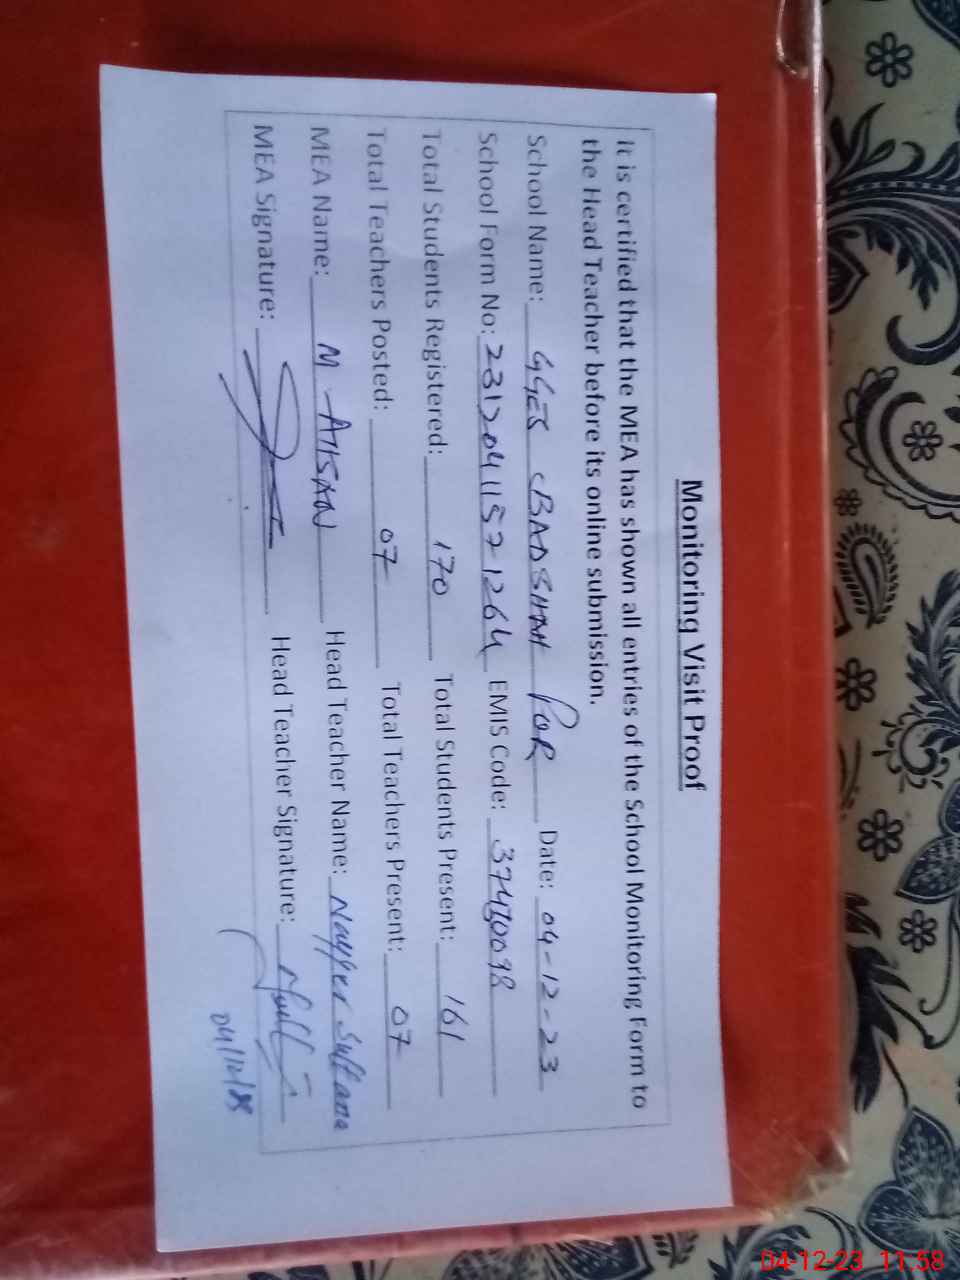 Monitoring Visit Proof
It is certified that the MEA has shown all entries of the School Monitoring Form to
the Head Teacher before its online submission.
School Name: GGES BADSHAH POR Date: 04-12-23
School Form No: 23120411571264 EMIS Code:
Total Students Registered: 170 Total Students Present: 161
Total Teachers Posted: 07 Total Teachers Present: 07
MEA Name: M-AHSAN Head Teacher Name: Nayyer Sultana
MEA Signature: Head Teacher Signature:
04-12-23 11:58